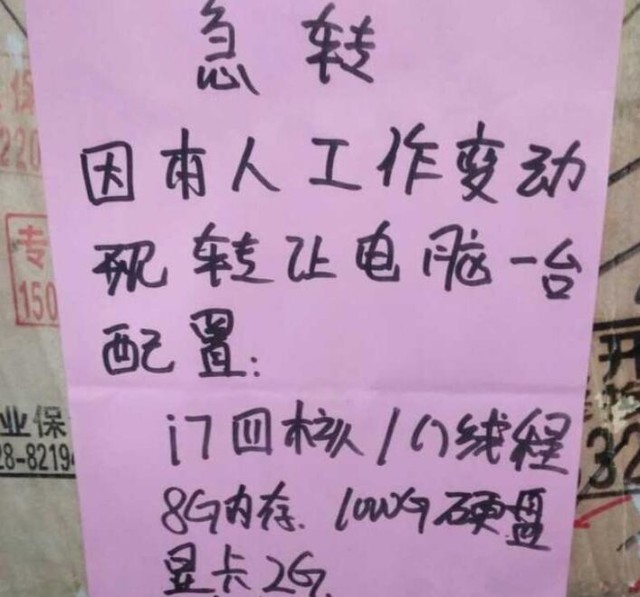 急转
因本人工作变动
现转让电脑一台
配置：
i7四核八线程
8G内存. 1000G硬盘
显卡2G
保
220
专
150
业保
28-8219
开
32